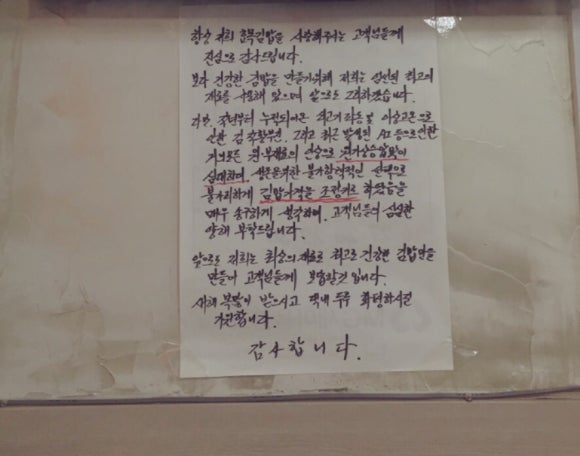 항상 저희 오복김밥을 사랑해주시는 고객님들께
진심으로 감사드립니다.
보다 건강한 김밥을 만들기위해 저희는 엄선된 최고의
재료를 사용해 왔으며 앞으로도 그리하겠습니다.
다만, 작년부터 누적되어온 최저가 작동 및 이상고온으로
인한 김 작황부진, 그리고 최근 발생된 AI 등으로인한
거의모든 원·부재료의 인상으로 원가상승압박이
심대하여, 생존을위한 불가항력적인 선택으로
불가피하게 김밥가격을 조정키로 하였음을
매우 송구하게 생각하며, 고객님들의 심심한
양해 부탁드립니다.
앞으로도 저희는 최상의 재료로 최고로 건강한 김밥만을
만들어 고객님들께 보답할것 입니다.
새해 복많이 받으시고 댁내 두루 화평하시길
기원합니다.
감사합니다.